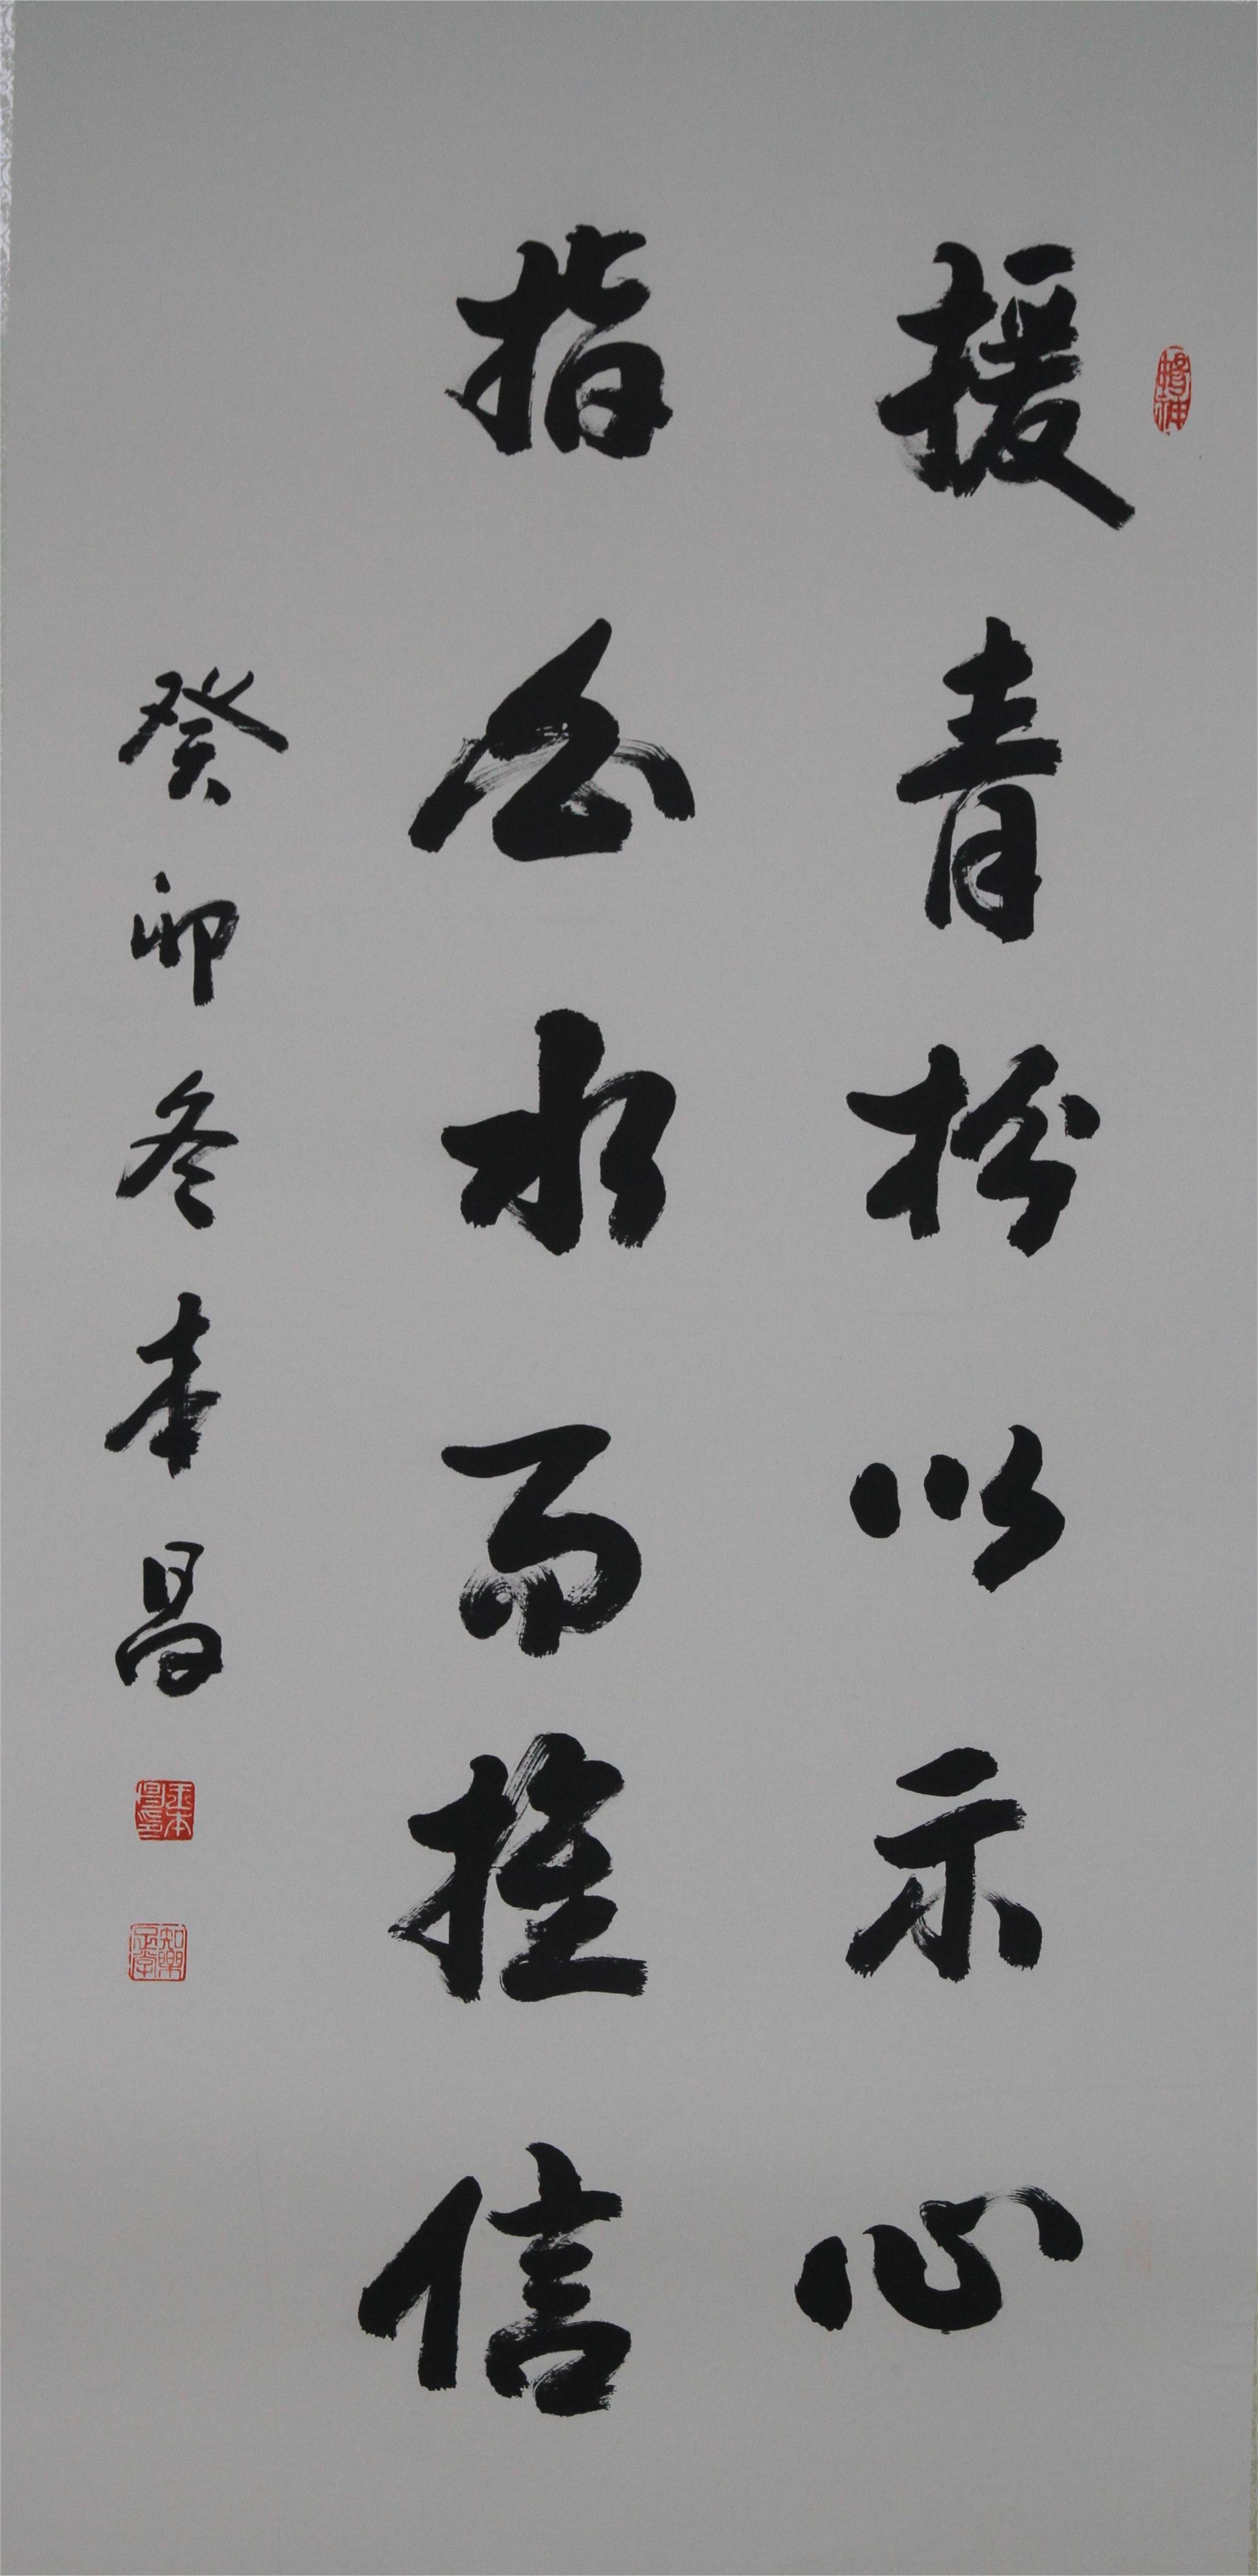 援青松以示心
指白水而旌信
癸卯冬本昌